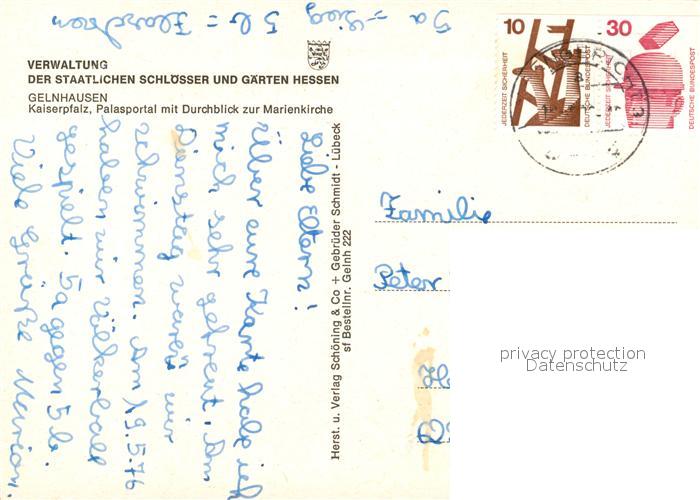 5a = Sieg 5b =
VERWALTUNG
DER STAATLICHEN SCHLÖSSER UND GÄRTEN HESSEN
GELNHAUSEN
Kaiserpfalz, Palasportal mit Durchblick zur Marienkirche
Liebe Eltern!
Über eure Karte habe ich
mich sehr gefreut. Am
Dienstag waren wir
schwimmen. Am 19.5.76
haben wir Völkerball
gespielt. 5a gegen 5b.
Viele Grüße Marion.
Herst. u. Verlag Schöning & Co + Gebrüder Schmidt - Lübeck
sf Bestellnr. Gelnh 222
10
JEDERZEIT SICHERHEIT
DEUTSCHE BUNDESPOST
30
JEDERZEIT SICHERHEIT
DEUTSCHE BUNDESPOST
Familie
Peter
privacy protection
Datenschutz